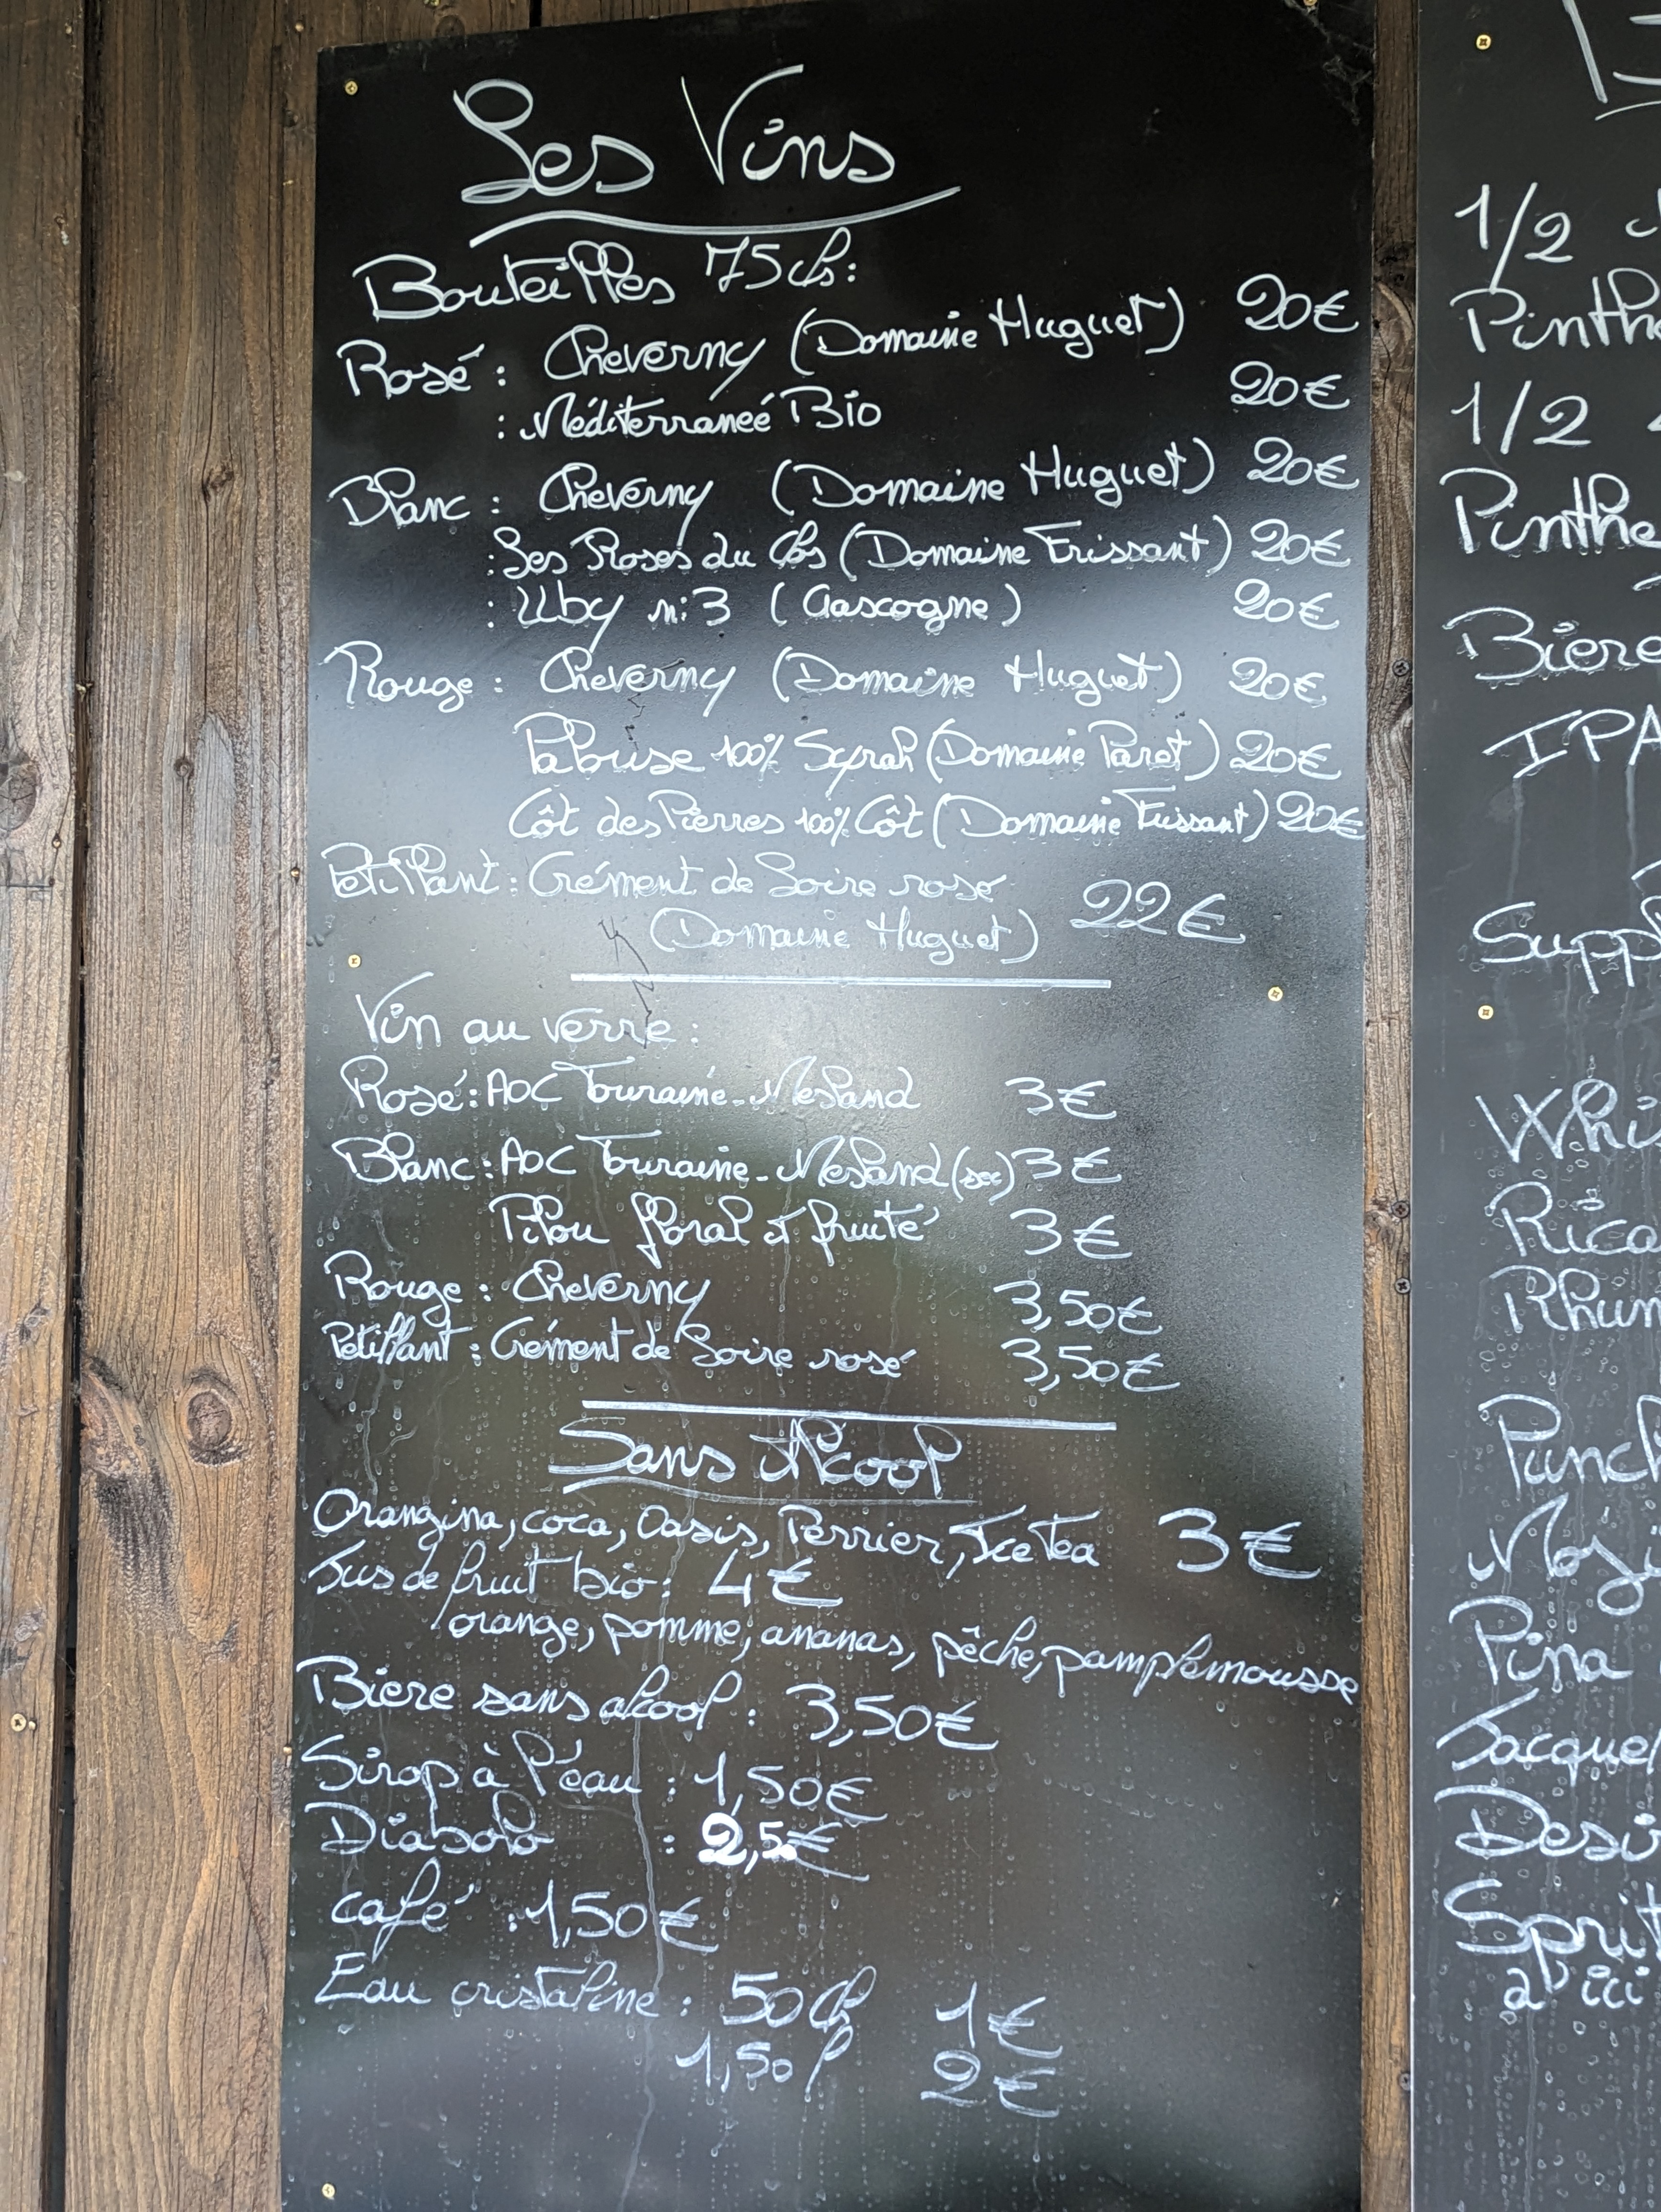 Les Vins
Bouteilles 75cl:
Rosé : Cheverny (Domaine Huguet) 20€
: Méditerraneé Bio 20€
Blanc : Cheverny (Domaine Huguet) 20€
: Les Roses du Clos (Domaine Frissant) 20€
: Uby n:3 (Gascogne) 20€
Rouge : Cheverny (Domaine Huguet) 20€
100% Syrah (Domaine Paret) 20€
Côt des Pierres 100% Côt (Domaine Frissant) 20€
Petillant : Crément de Loire rosé
(Domaine Huguet) 22€
Vin au verre :
Rosé : AOC Touraine-Mesland 3€
Blanc : AOC Touraine-Mesland (sec) 3€
Pilou floral et fruité 3€
Rouge : Cheverny 3,50€
Petillant : Crément de Loire rosé 3,50€
Sans Alcool
Orangina, coca, Oasis, Perrier, Ice Tea 3€
Jus de fruit bio : 4€
orange, pomme, ananas, pêche, pamplemousse
Bière sans alcool : 3,50€
Sirop à l'eau : 1,50€
Diabolo : 2,5€
café : 1,50€
Eau cristaline : 50cl 1€
1,50l 2€
1/2
Pinthe
1/2
Pinthe
Bière
IPA
Suppl
Whi
Rica
Rhum
Punch
Moji
Pina
Jacquel
Desi
Sprit